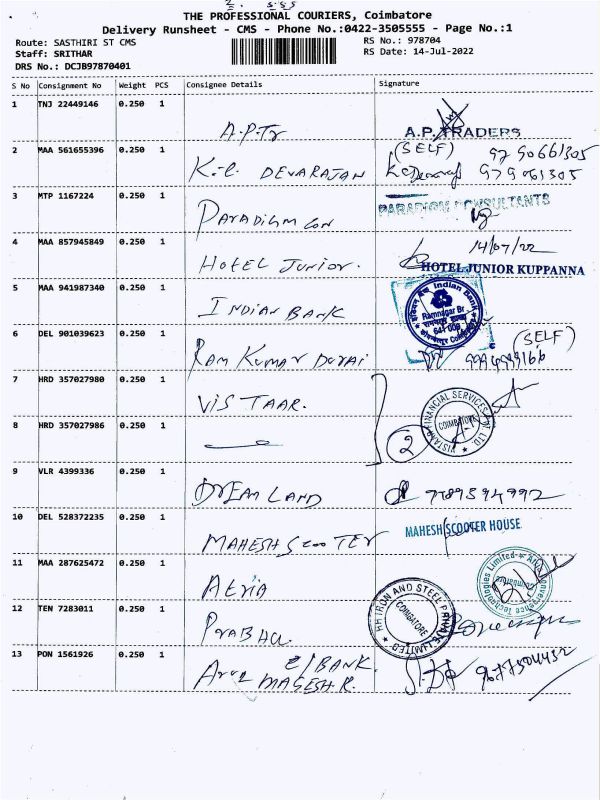 THE PROFESSIONAL COURIERS, Coimbatore
Delivery Runsheet - CMS - Phone No.:0422-3505555 - Page No.:1
Route: SASTHIRI ST CMS
RS No.: 978704
Staff: SRITHAR
RS Date: 14-Jul-2022
DRS No.: DCJB97870401
S No Consignment No Weight PCS Consignee Details Signature
1 TNJ 22449146 0.250 1
A.P.Tr A.P. TRADERS
2 MAA 561655396 0.250 1 (SELF) 9790661305
DEVARAJAN
3 MTP 1167224 0.250 1 PARADIGM CONSULTANTS
PARADIGM CON
4 MAA 857945849 0.250 1 14/07/22
HOTEL JUNIOR. HOTEL JUNIOR KUPPANNA
5 MAA 941987340 0.250 1 Indian Bank
INDIAN BANK Ramnagar Br 641 009
6 DEL 901039623 0.250 1 (SELF)
RAM KUMAR DORAI
7 HRD 357027980 0.250 1
VISTAAR. FINANCIAL SERVICES COIMBATORE
8 HRD 357027986 0.250 1 2
9 VLR 4399336 0.250 1
DREAM LAND
10 DEL 528372235 0.250 1 MAHESH SCOOTER HOUSE
MAHESH SCOOTER
11 MAA 287625472 0.250 1
Atria
12 TEN 7283011 0.250 1 IRON AND STEEL PRIVATE LIMITED COIMBATORE
PRABHU
13 PON 1561926 0.250 1 BANK
MAGESH.R.